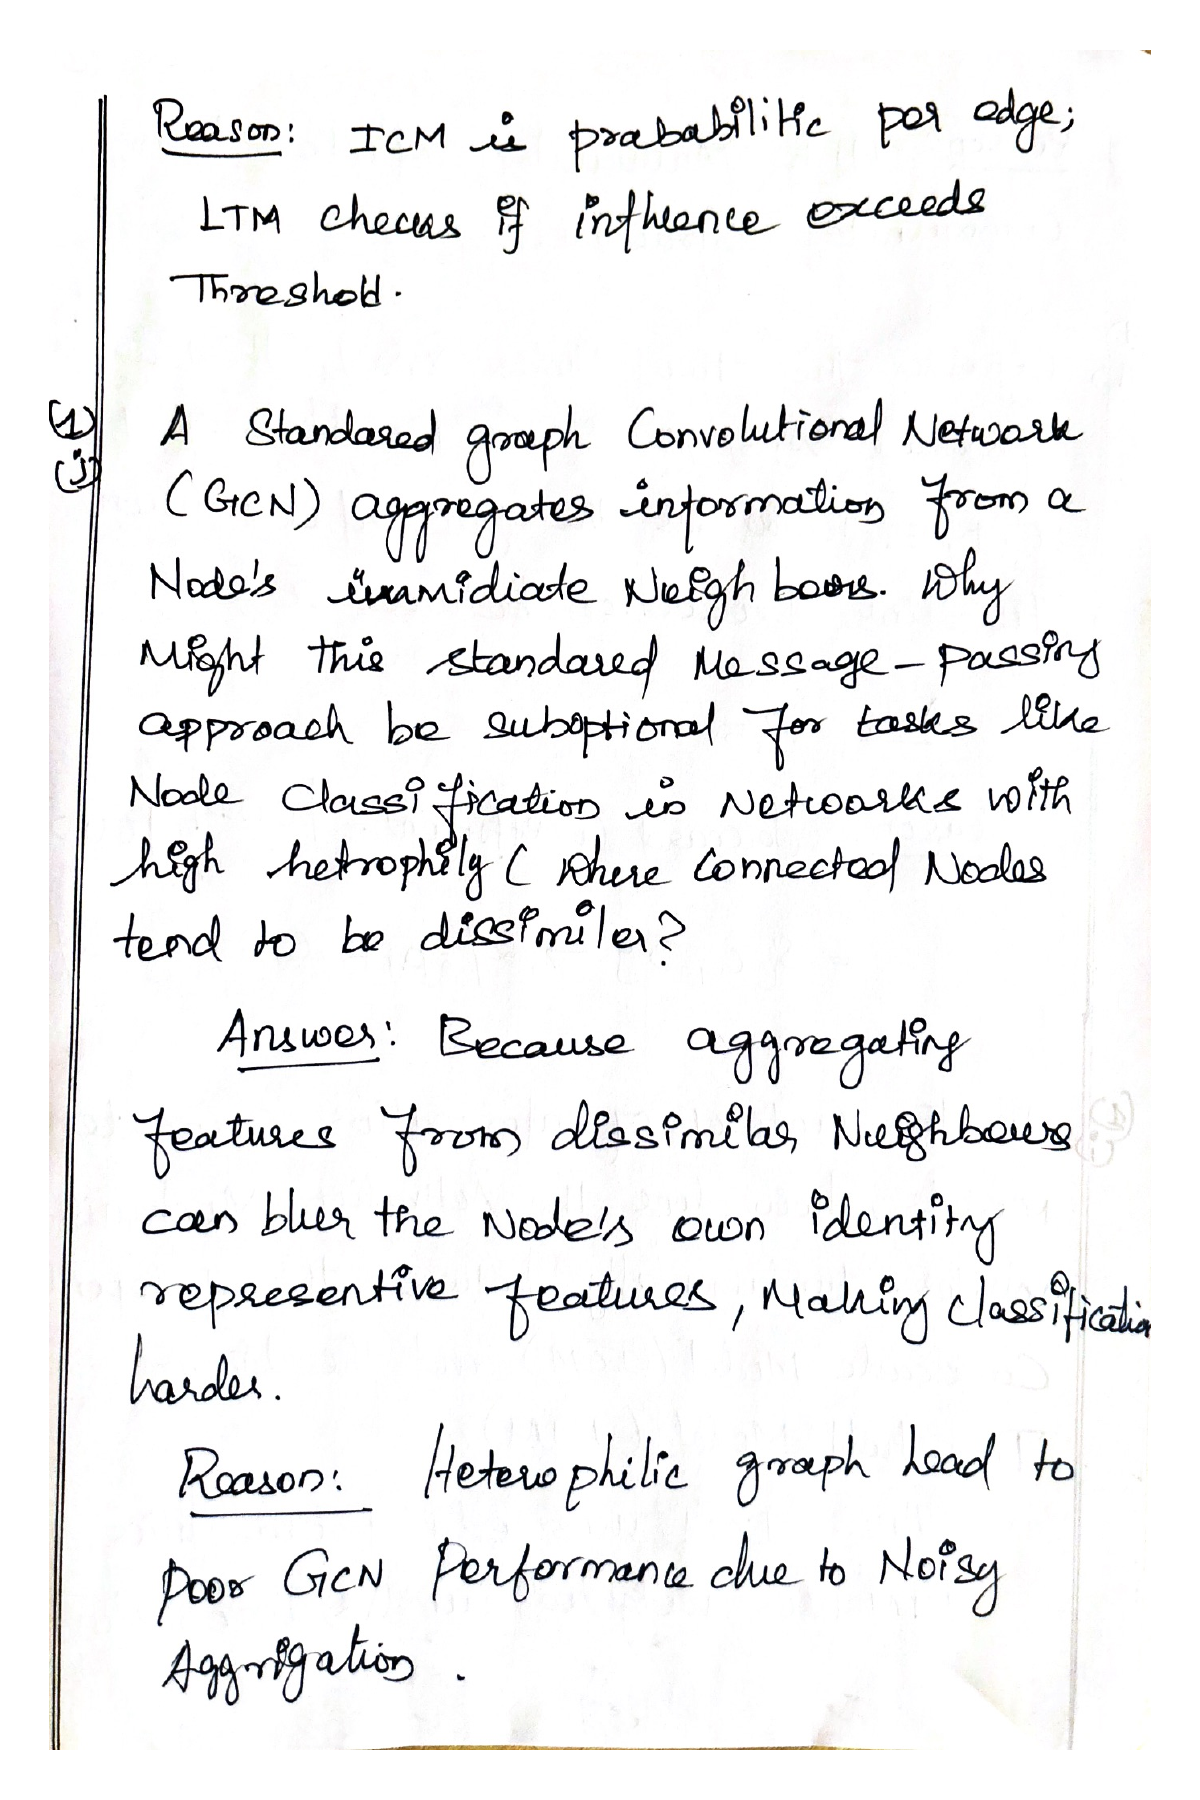 Reason: ICM is prababilitic per edge;
LTM checks if influence exceeds
Threshold.
(1) A Standared graph Convolutional Network
(j) (GCN) aggregates information from a
Node's immidiate Neighbours. Why
Might this standared Message-Passing
approach be suboptional for tasks like
Node Classification in Networks with
high hetrophily ( where Connected Nodes
tend to be dissimiler?
Answer: Because aggregating
features from dissimilar Neighbours
can blur the Node's own identity
representive features, Making classification
harder.
Reason: Heterophilic graph Lead to
Poor GCN Performance due to Noisy
Aggrigation.